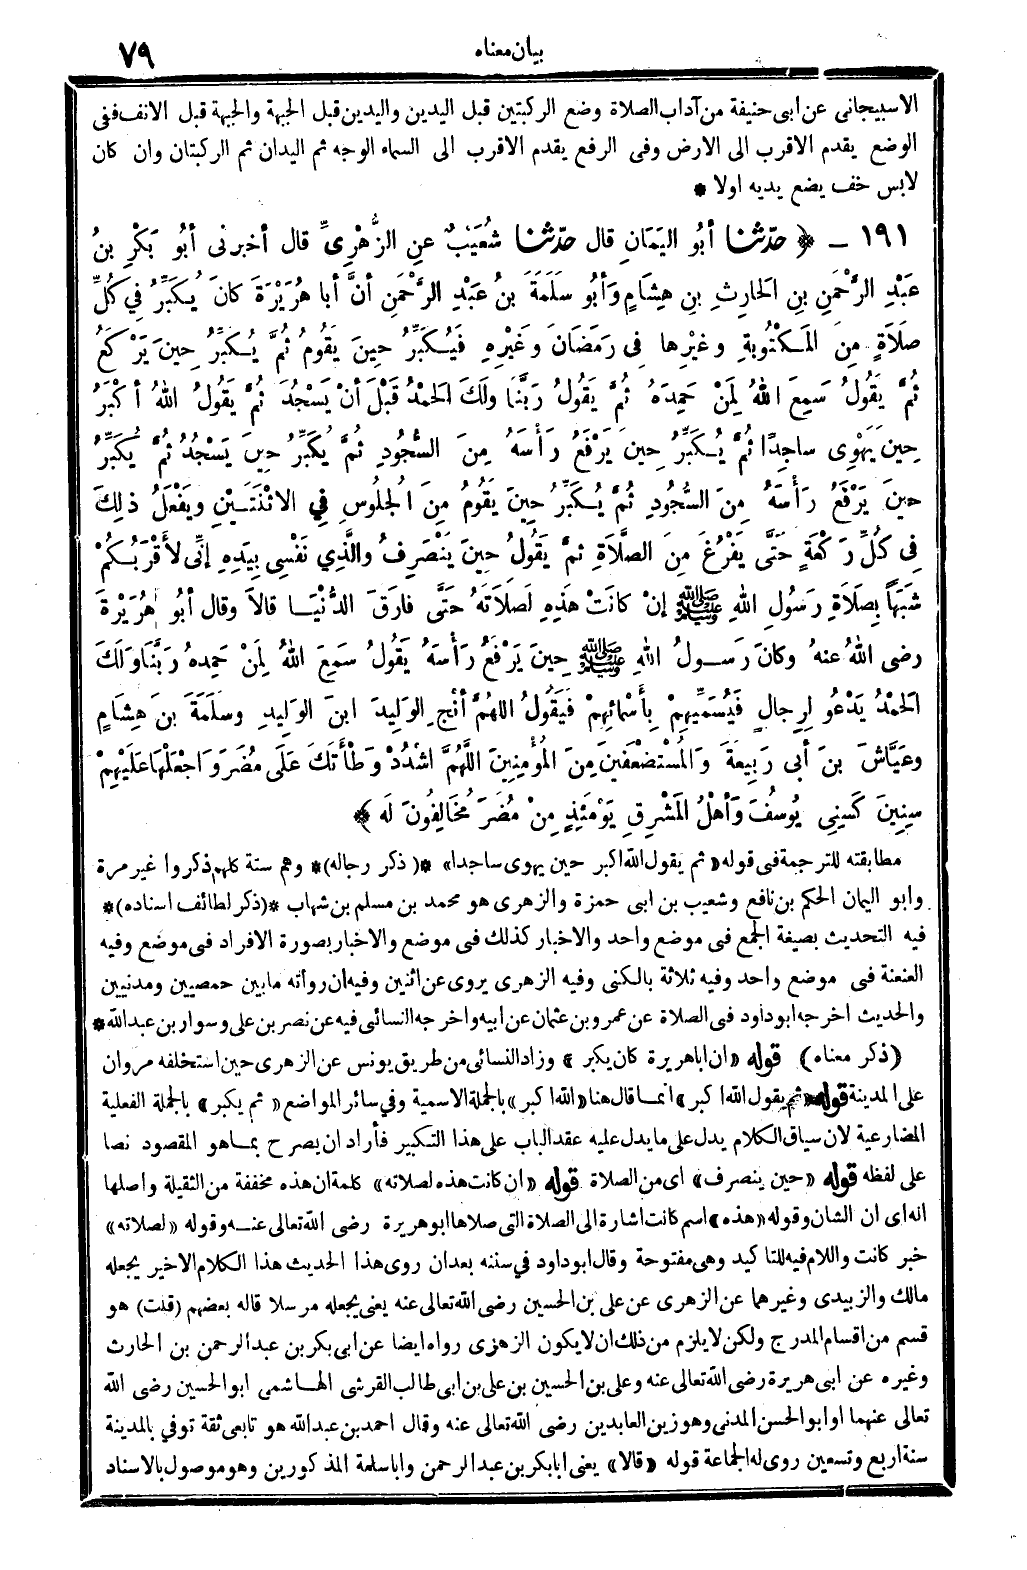 بيان معناه ٧٩
الاسبيجانى عن ابى حنيفة من آداب الصلاة وضع الركبتين قبل اليدين واليدين قبل الجبهة والجبهة قبل الانف ففى
الوضع يقدم الاقرب الى الارض وفى الرفع يقدم الاقرب الى السماء الوجه ثم اليدان ثم الركبتان وان كان
لابس خف يضع يديه اولا *
١٩١ - ﴿ حدّثنا أبُو اليَمَانِ قال حدّثنا شُعَيْبٌ عنِ الزُّهْرِىِّ قال أخبرنى أبُو بَكْرِ بنُ
عَبْدِ الرَّحْمَنِ بنِ الحَارِثِ بنِ هِشَامٍ وَأبُو سَلَمَةَ بنُ عَبْدِ الرَّحْمَنِ أنَّ أبا هُرَيْرَةَ كانَ يُكَبِّرُ فِي كُلِّ
صَلَاةٍ مِنَ المَكْتُوبَةِ وغَيْرِها فى رمَضَانَ وَغَيْرِهِ فَيُكَبِّرُ حِينَ يَقُومُ ثُمَّ يُكَبِّرُ حِينَ يَرْكَعُ
ثُمَّ يَقُولُ سَمِعَ اللهُ لِمَنْ حَمِدَهُ ثُمَّ يَقُولُ رَبَّنَا ولَكَ الحَمْدُ قَبْلَ أنْ يَسْجُدَ ثُمَّ يَقُولُ اللهُ أكْبَرُ
حِينَ يَهْوِى ساجِدًا ثُمَّ يُكَبِّرُ حِينَ يَرْفَعُ رَأْسَهُ مِنَ السُّجُودِ ثُمَّ يُكَبِّرُ حِينَ يَسْجُدُ ثُمَّ يُكَبِّرُ
حِينَ يَرْفَعُ رَأْسَهُ مِنَ السُّجُودِ ثُمَّ يُكَبِّرُ حِينَ يَقُومُ مِنَ الجُلُوسِ فِي الاثْنَتَيْنِ ويَفْعَلُ ذلِكَ
فِى كُلِّ رَكْعَةٍ حَتَّى يَفْرُغَ مِنَ الصَّلَاةِ ثمَّ يَقُولُ حِينَ يَنْصَرِفُ والَّذِي نَفْسِى بِيَدِهِ إنِّى لَأقْرَبُكُمْ
شَبَهًا بِصَلَاةِ رَسُولِ اللهِ ﷺ إنْ كانَتْ هَذِهِ لَصَلَاتَهُ حَتَّى فارَقَ الدُّنْيَا قالا وقال أبُو هُرَيْرةَ
رضى اللهُ عنهُ وكانَ رَسُولُ اللهِ ﷺ حِينَ يَرْفَعُ رَأْسَهُ يَقُولُ سَمِعَ اللهُ لِمَنْ حَمِدهُ رَبَّنَا وَلَكَ
الحَمْدُ يَدْعُو لِرِجالٍ فَيُسَمِّيهِمْ بِأسْمَائِهِمْ فَيَقُولُ اللهُمَّ أنْجِ الوَلِيدَ ابنَ الوَلِيدِ وسَلَمَةَ بنَ هِشَامٍ
وعَيَّاشَ بنَ أبى رَبِيعَةَ وَالمُسْتَضْعَفِينَ مِنَ المُؤْمِنِينَ اللَّهُمَّ اشْدُدْ وَطْأَتَكَ عَلَى مُضَرَ وَاجْعَلْهَا عَلَيْهِمْ
سِنِينَ كَسِنِى يُوسُفَ وَأهْلُ المَشْرِقِ يَوْمَئِذٍ مِنْ مُضَرَ مُخَالِفُونَ لَه ﴾
مطابقته للترجمة فى قوله «ثم يقول الله اكبر حين يهوى ساجدا» *(ذكر رجاله)* وهم ستة كلهم ذكروا غير مرة
وابو اليمان الحكم بن نافع وشعيب بن ابى حمزة والزهرى هو محمد بن مسلم بن شهاب *(ذكر لطائف اسناده)*
فيه التحديث بصيغة الجمع فى موضع واحد والاخبار كذلك فى موضع والاخبار بصورة الافراد فى موضع وفيه
العنعنة فى موضع واحد وفيه ثلاثة بالكنى وفيه الزهرى يروى عن اثنين وفيه ان رواته ما بين حمصيين ومدنيين
والحديث اخرجه ابو داود فى الصلاة عن عمرو بن عثمان عن ابيه واخرجه النسائى فيه عن نصر بن على وسوار بن عبد الله *
(ذكر معناه) قوله «ان ابا هريرة كان يكبر» وزاد النسائى من طريق يونس عن الزهرى حين استخلفه مروان
على المدينة قوله «ثم يقول الله اكبر» انما قال هنا «الله اكبر» بالجملة الاسمية وفي سائر المواضع «ثم يكبر» بالجملة الفعلية
المضارعية لان سياق الكلام يدل على ما يدل عليه عقد الباب على هذا التكبير فأراد ان يصرح بما هو المقصود نصا
على لفظه قوله «حين ينصرف» اى من الصلاة قوله «ان كانت هذه لصلاته» كلمة ان هذه مخففة من الثقيلة واصلها
انه اى ان الشان وقوله «هذه» اسم كانت اشارة الى الصلاة التى صلاها ابو هريرة رضى الله تعالى عنه وقوله «لصلاته»
خبر كانت واللام فيه للتاكيد وهى مفتوحة وقال ابو داود في سننه بعد ان روى هذا الحديث هذا الكلام الاخير يجعله
مالك والزبيدى وغيرهما عن الزهرى عن على بن الحسين رضى الله تعالى عنه يعنى يجعله مرسلا قاله بعضهم (قلت) هو
قسم من اقسام المدرج ولكن لا يلزم من ذلك ان لا يكون الزهرى رواه ايضا عن ابى بكر بن عبد الرحمن بن الحارث
وغيره عن ابى هريرة رضى الله تعالى عنه وعلى بن الحسين بن على بن ابى طالب القرشى الهاشمى ابو الحسين رضى الله
تعالى عنهما او ابو الحسن المدنى وهو زين العابدين رضى الله تعالى عنه وقال احمد بن عبد الله هو تابعى ثقة توفي بالمدينة
سنة اربع وتسعين روى له الجماعة قوله «قالا» يعنى ابا بكر بن عبد الرحمن وابا سلمة المذكورين وهو موصول بالاسناد